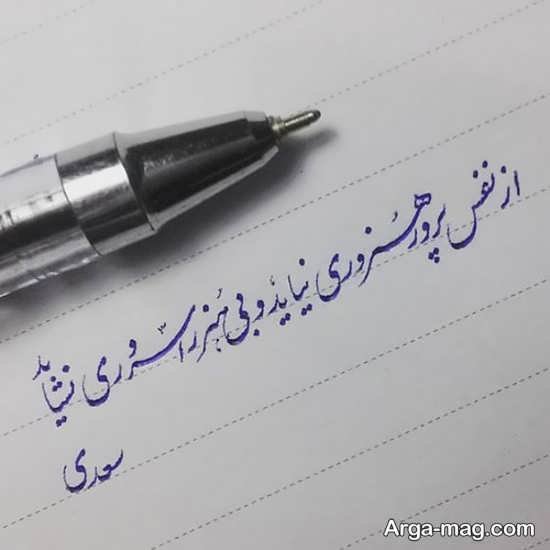 از نفس پرور هُنروری نیاید و بی هُنر را سَروری نشاید
سعدی
Arga-mag.com